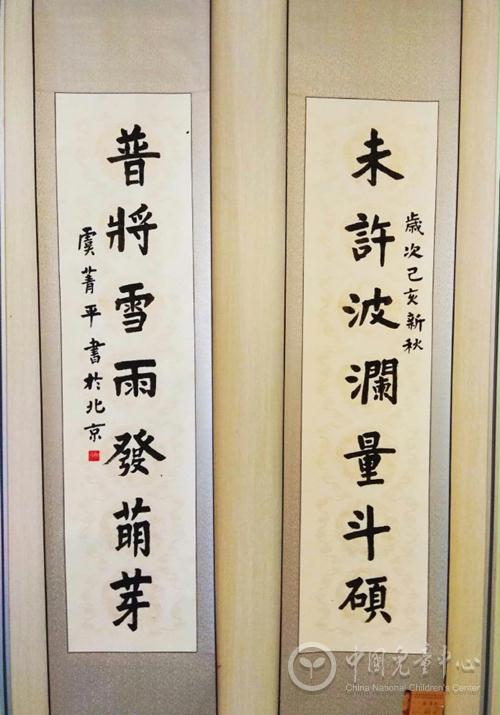 未許波瀾量斗碩
歲次己亥新秋
普將雪雨發萌芽
虞菁平書於北京
中國兒童中心
China National Children's Center